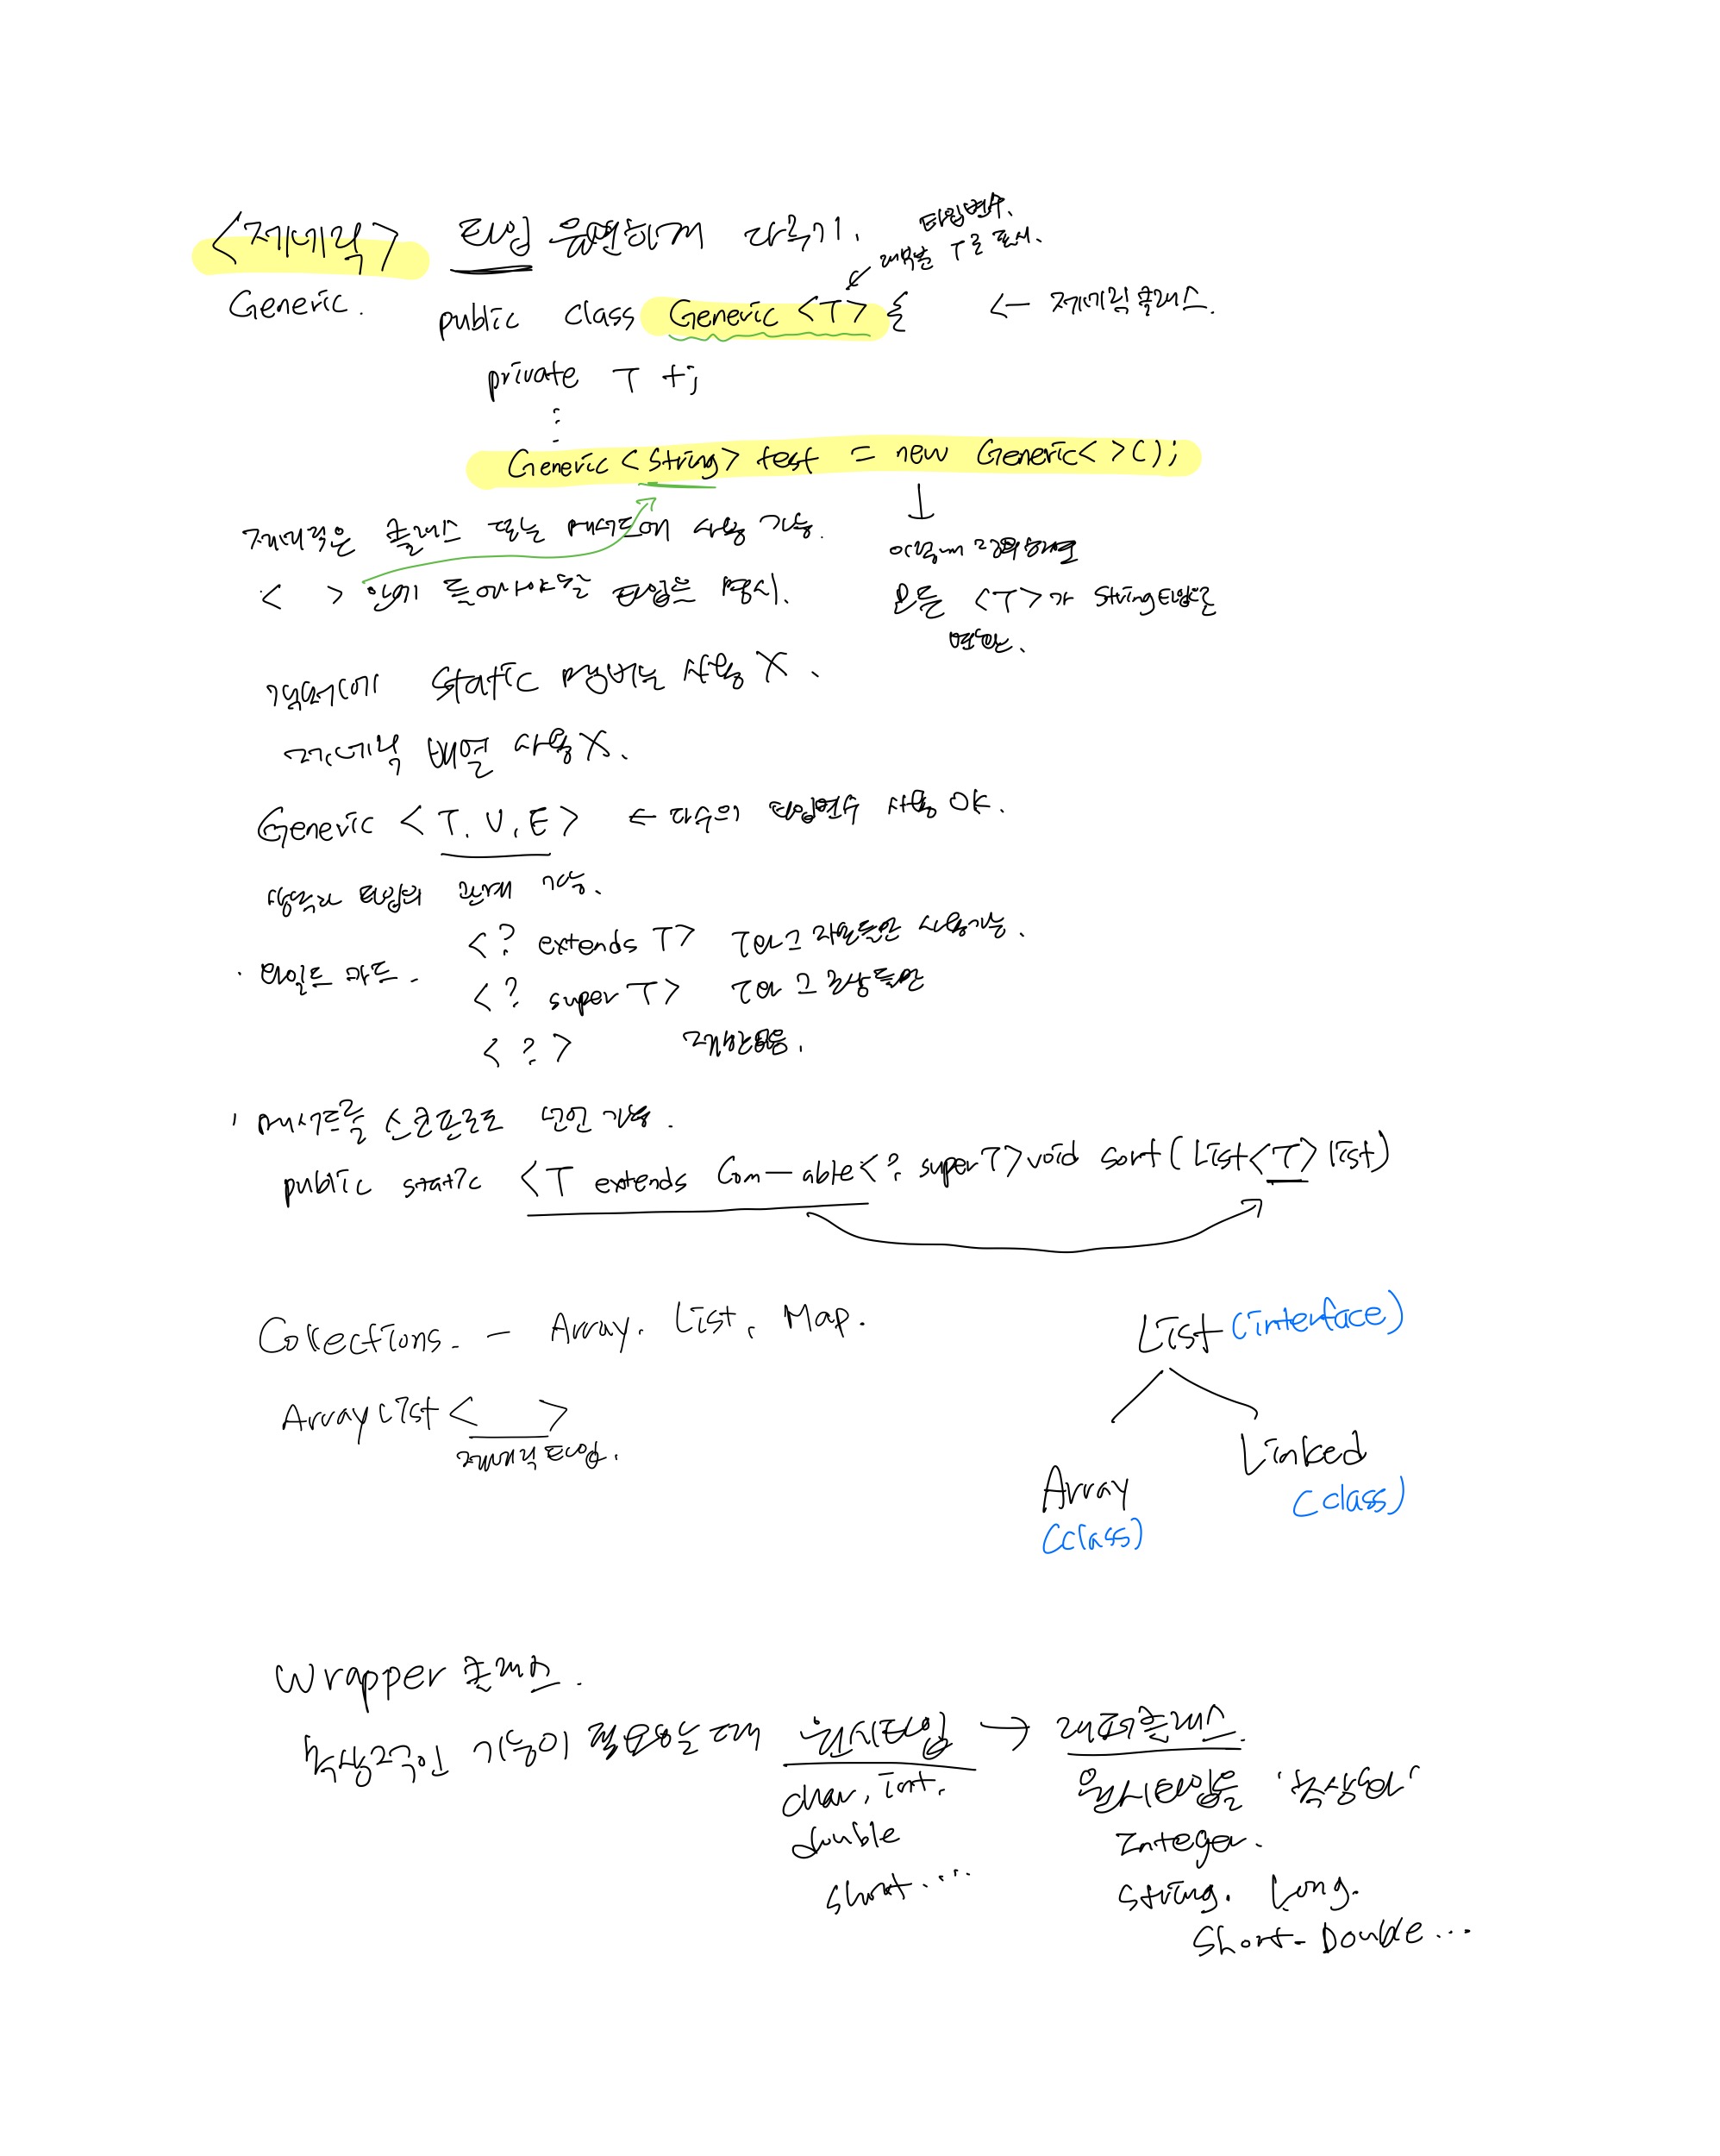 <제네릭> 타입 유연하게 다루기.
타입변수.
대부분 T로 표시.
Generic.
public class Generic <T> {
← 제네릭 클래스.
private T t;
⋮
Generic <String> test = new Generic< >();
제네릭은 클래스 또는 메서드에 사용 가능.
< > 안에 들어가야할 타입을 명시.
이렇게 정의하면
모든 <T>가 String타입으로
변환.
static 멤버는 사용 X.
제네릭 배열 사용 X.
Generic <T, U, E> ← 다수의 타입변수 사용 OK.
타입의 관계 가능.
· 와일드 카드.
<? extends T> T와 그 자손들만 사용가능.
<? super T> T와 그 조상들만
<?> 제한없음.
메서드를 스코프로 선언 가능.
public static <T extends Com—able<? super T> void sort(List<T> list)
Collections. — Array. List, Map.
List (interface)
ArrayList < >
제네릭 타입.
Array
(class)
Linked
(class)
Wrapper 클래스.
객체적인 기능이 필요하는 때 원시타입 → 래퍼클래스.
char, int,
double
short....
원시타입을
Integer.
String. Long.
Short- Double ...